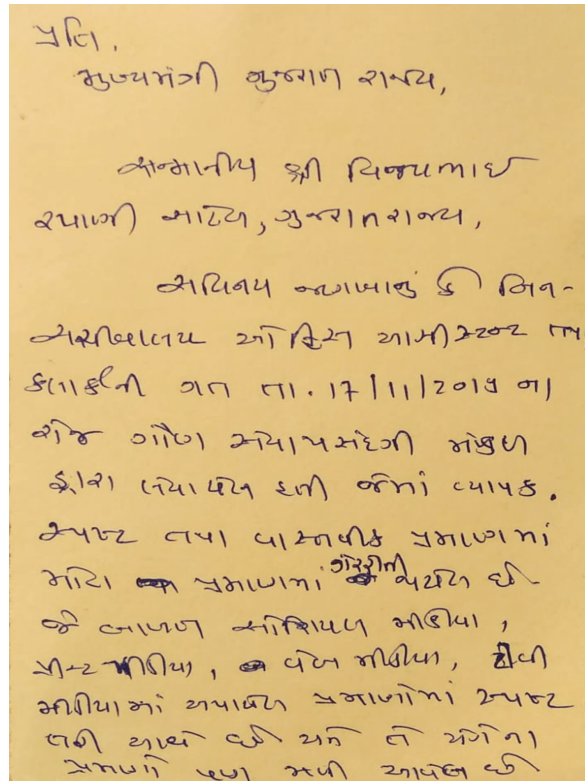 પ્રતિ,
મુખ્યમંત્રી ગુજરાત રાજ્ય,
સન્માનીય શ્રી વિજયભાઈ
રૂપાણી સાહેબ, ગુજરાત રાજ્ય,
સવિનય જણાવાનું કે બિન-
સચીવાલય ઓફિસ આસીસ્ટન્ટ તથા
કલાર્કની ગત તા. 17/11/2019 ના
રોજ ગૌણ સેવા પસંદગી મંડળ
દ્વારા લેવાયેલ હતી જેમાં વ્યાપક.
સ્પષ્ટ તથા વાસ્તવીક પ્રમાણમાં
મોટા પ્રમાણમાં ગેરરીતી થયેલ છે
જે બાબત સોશિયલ મીડીયા,
પ્રીન્ટ મીડીયા, વેબ મીડીયા, ટીવી
મીડીયામાં અપાયેલ પ્રમાણોમાં સ્પષ્ટ
તરી આવે છે અને તે અંગેના
પ્રમાણો પણ મળી આવેલ છે